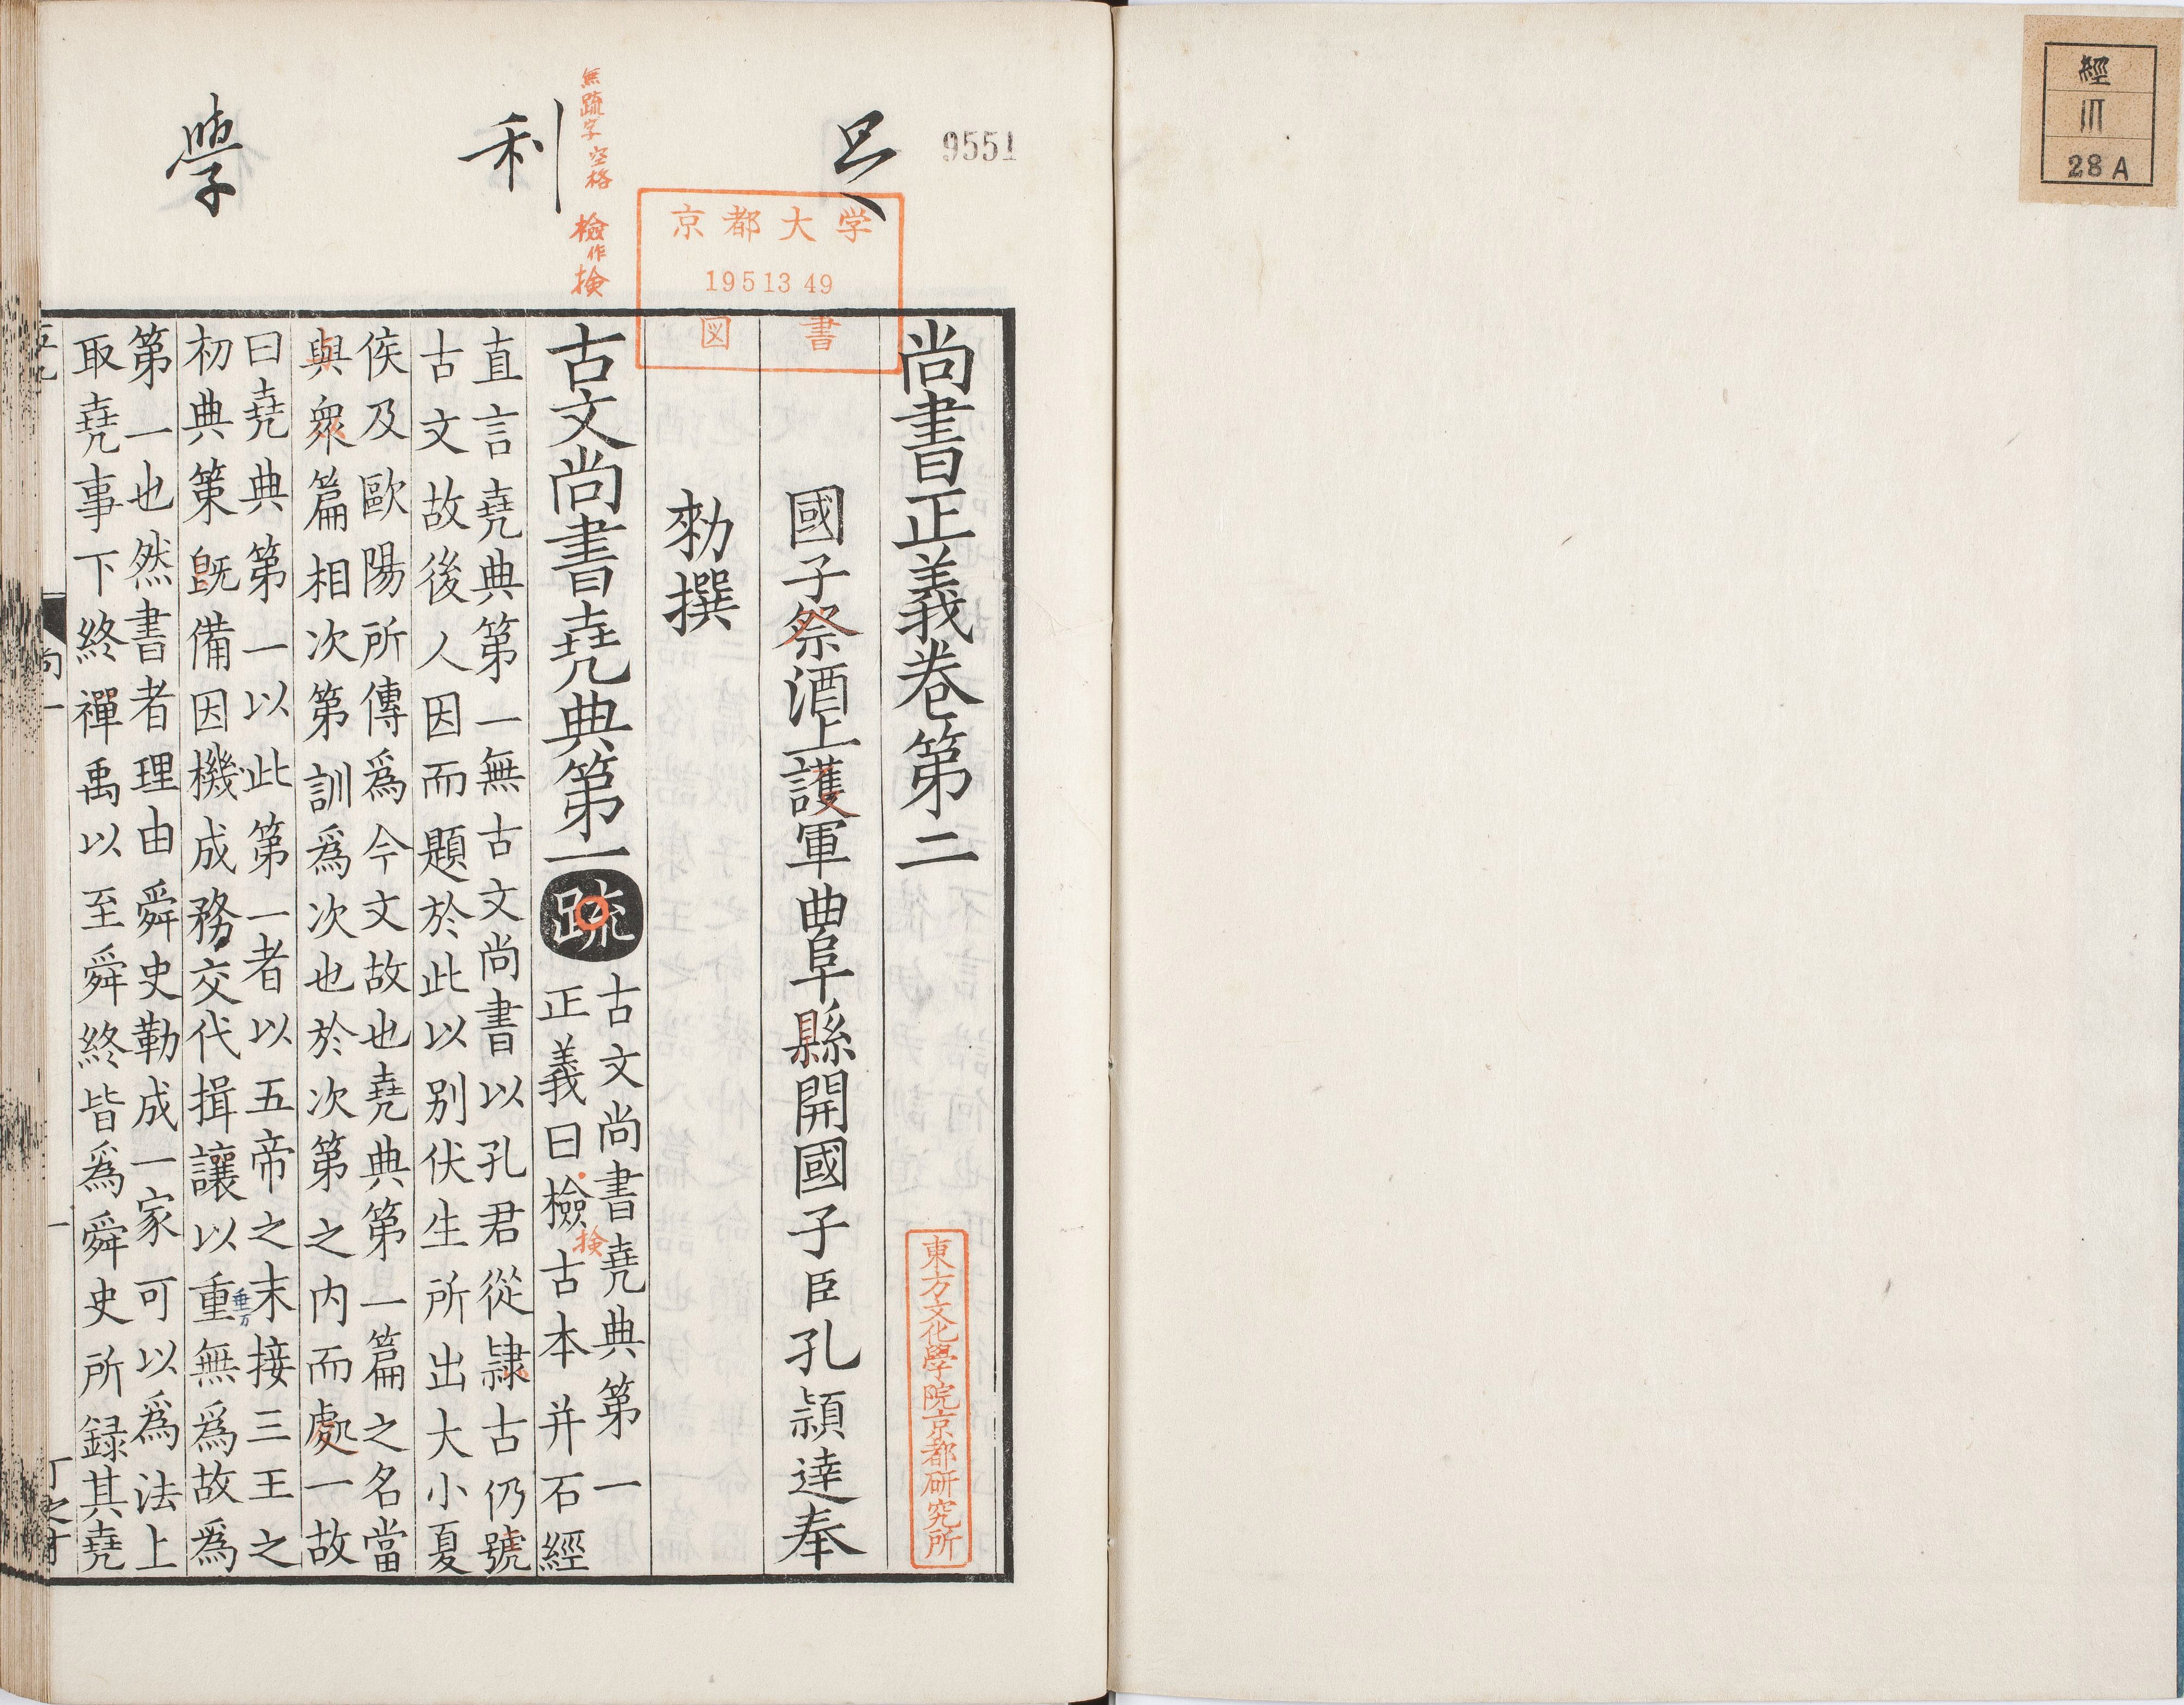 經
川
28A
9551
足
利
學
無疏字空格
檢作撿
京都大学
1951349
図書
東方文化學院京都研究所
尚書正義卷第二
國子祭酒上護軍曲阜縣開國子臣孔穎達奉
勑撰
古文尚書堯典第一疏
古文尚書堯典第一
正義曰檢古本并石經
撿
直言堯典第一無古文尚書以孔君從隷古仍號
古文故後人因而題於此以别伏生所出大小夏
侯及歐陽所傳爲今文故也堯典第一篇之名當
與衆篇相次第訓爲次也於次第之内而處一故
曰堯典第一以此第一者以五帝之末接三王之
初典策既備因機成務交代揖讓以重無爲故爲
第一也然書者理由舜史勒成一家可以爲法上
取堯事下終禪禹以至舜終皆爲舜史所録其堯
尚一
一